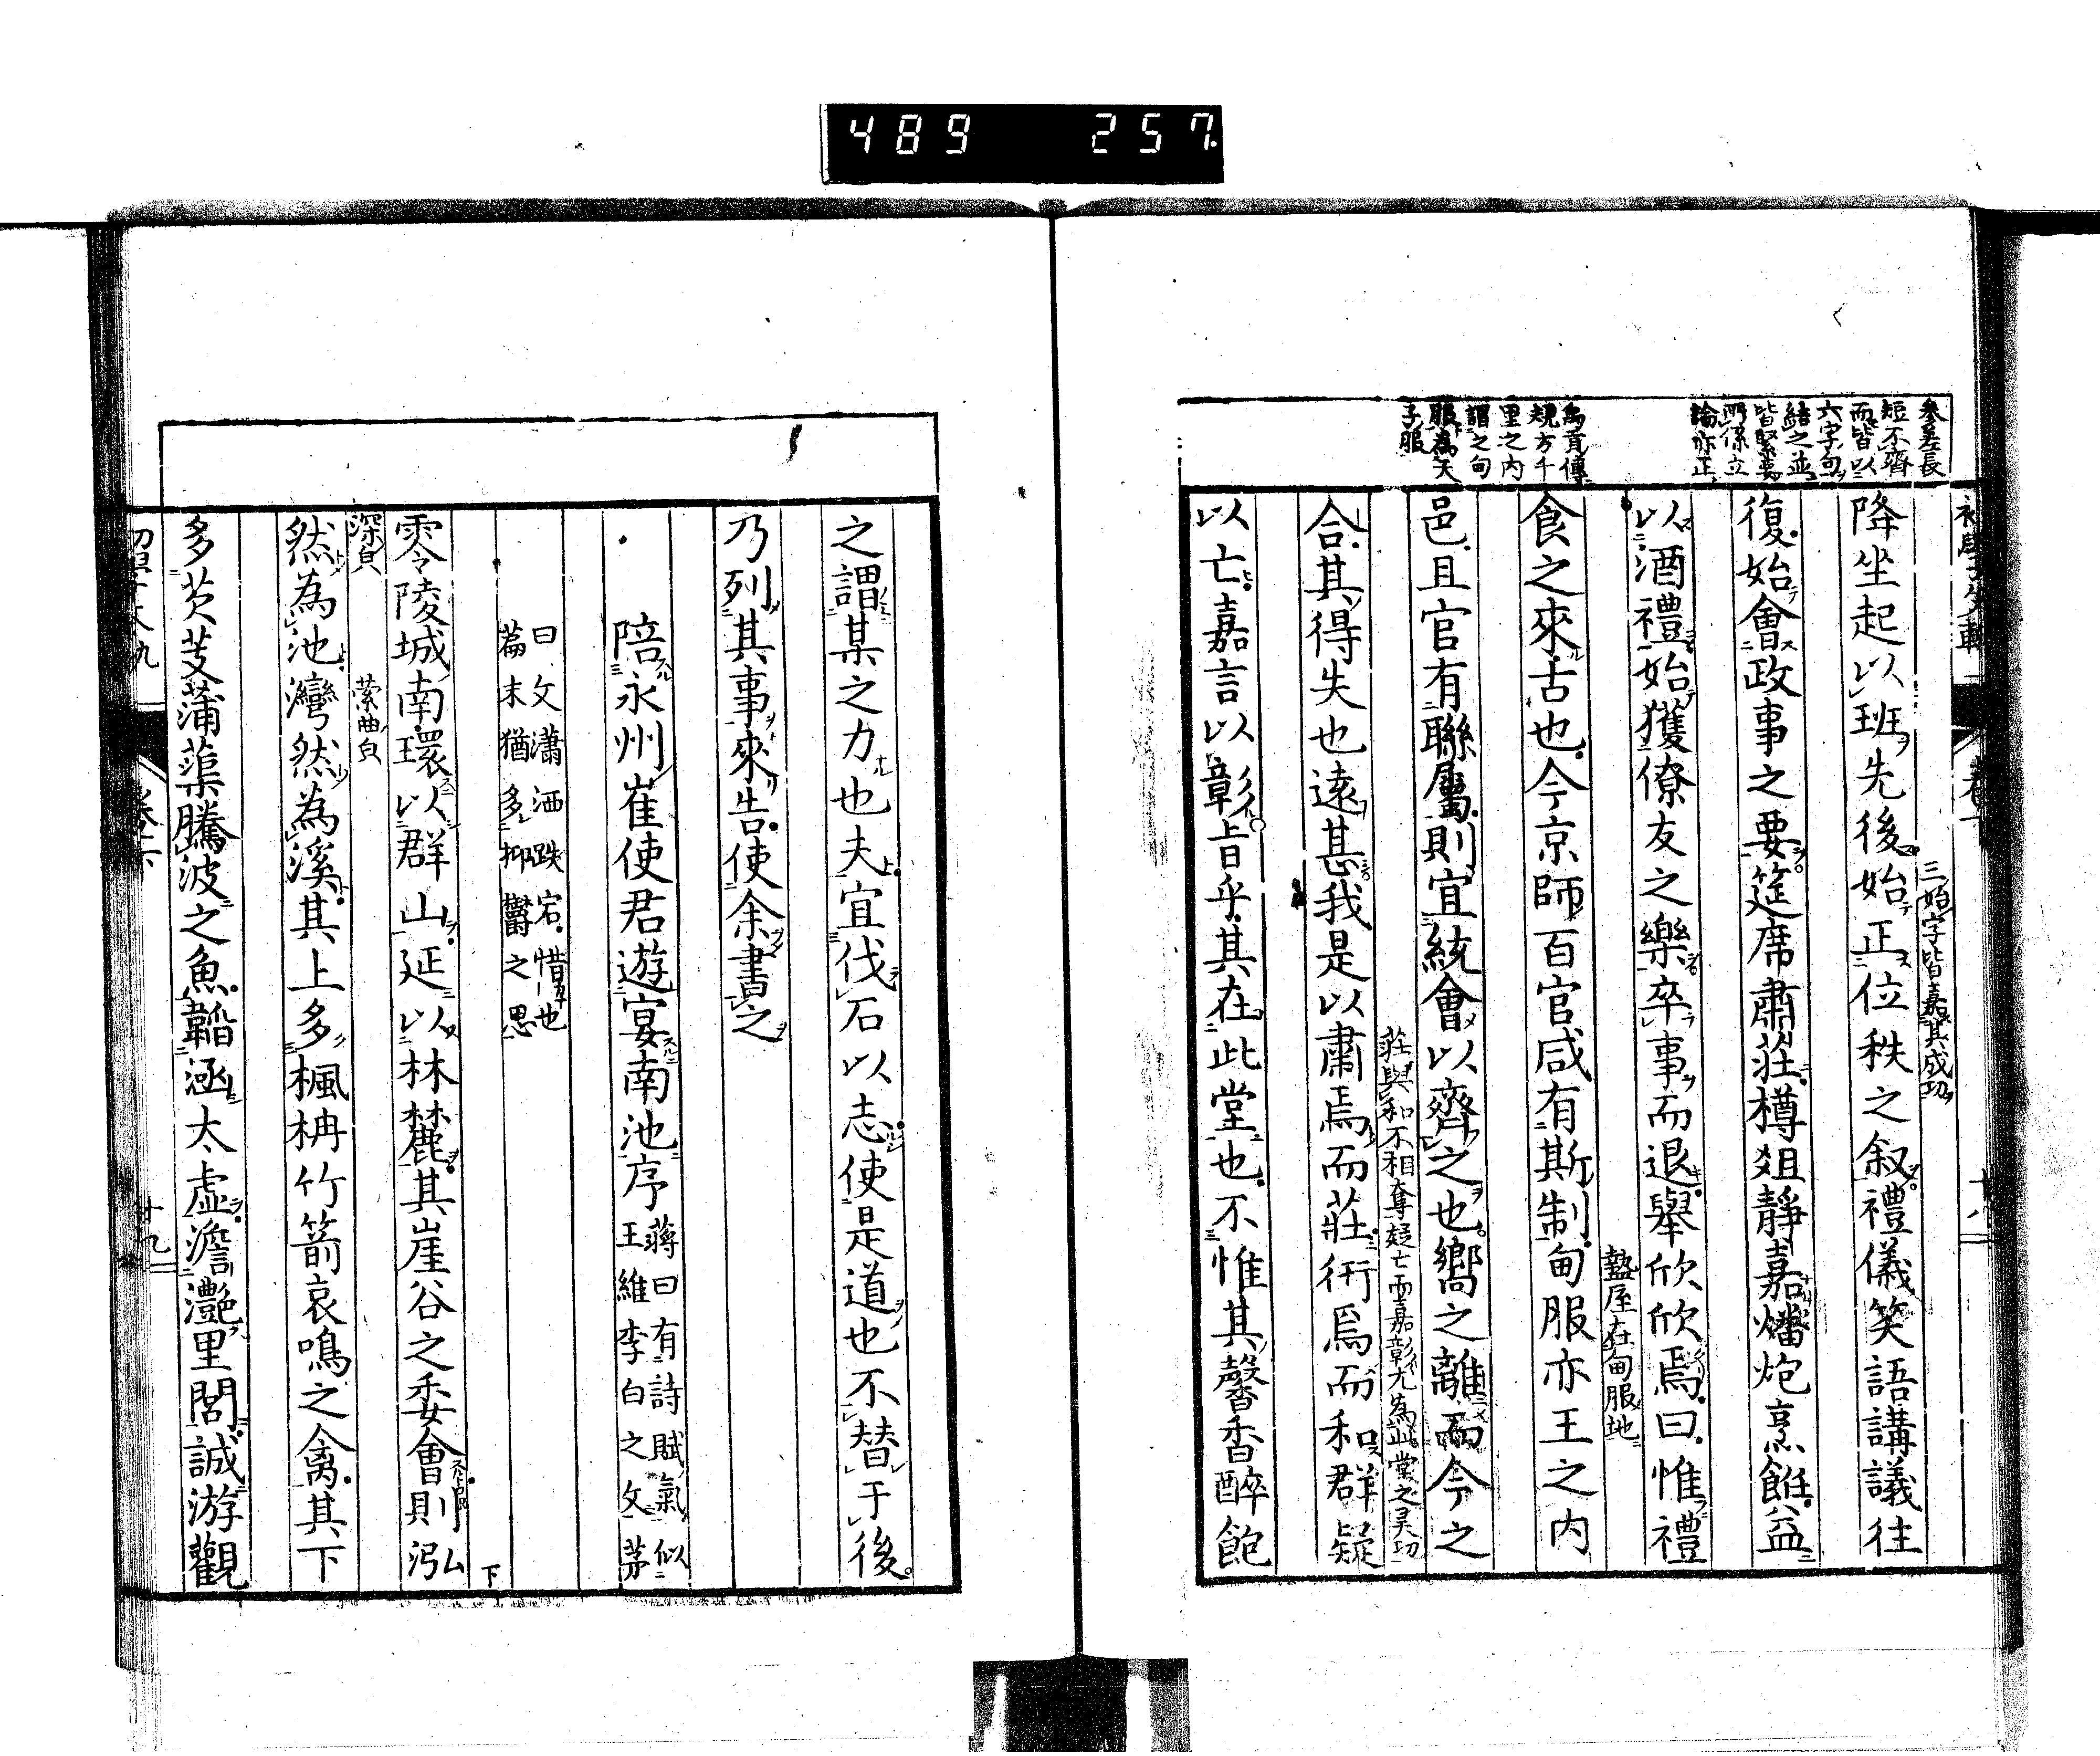 489 257
參差長
短不齊
而皆以
六字句
結之並
皆緊要
所係立
論亦正
禹貢傳
規方千
里之内
謂之甸
服為天
子服
三始字皆嘉其成功
降坐起以班先後始正位秩之叙禮儀笑語講議往
復始會政事之要筵席肅莊樽俎靜嘉燔炮烹飪益
以酒禮始獲僚友之樂卒事而退舉欣欣焉曰惟禮
盩厔在甸服地
食之來古也今京師百官咸有斯制甸服亦王之内
邑且官有聯屬則宜統會以齊之也嚮之離而今之
莊與和不相奪疑亡而嘉彰尤為此堂之昊功
合其得失也遠甚我是以肅焉而莊衎焉而和群疑
以亡嘉言以彰旨乎其在此堂也不惟其馨香醉飽
之謂某之力也夫宜伐石以志使是道也不替于後
乃列其事來告使余書之
陪永州崔使君遊宴南池序
蔣曰有詩賦氣似
王維李白之文茅
曰文瀟洒跌宕惜也
篇末猶多抑欝之思
零陵城南環以群山延以林麓其崖谷之委會則泓
下
深皃
縈曲皃
然為池灣然為溪其上多楓柟竹箭哀鳴之禽其下
多芡芰蒲蕖騰波之魚韜涵太虛澹灧里閭誠游觀
卷六
廿九